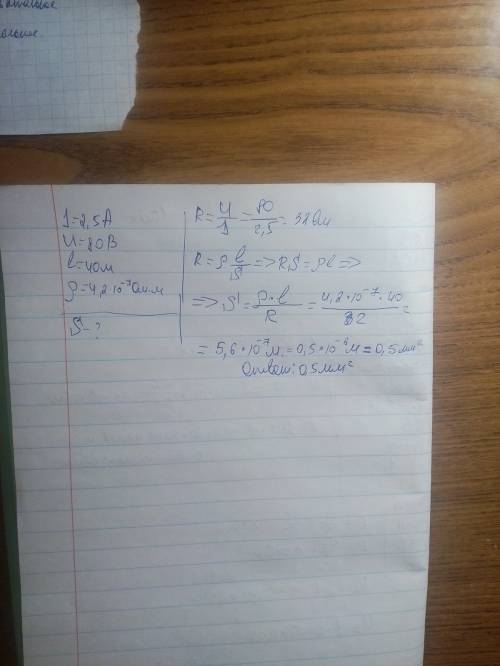 I=2,5A
U=80В
l=40м
ρ=4,2·10⁻⁷Ом·м
S - ?
R = U/I = 80/2,5 = 32Ом
R = ρ l/S => RS = ρl =>
=> S = ρ·l/R = 4,2·10⁻⁷·40/32 =
= 5,6·10⁻⁷м = 0,5·10⁻⁶м = 0,5мм²
Ответ: 0,5мм²